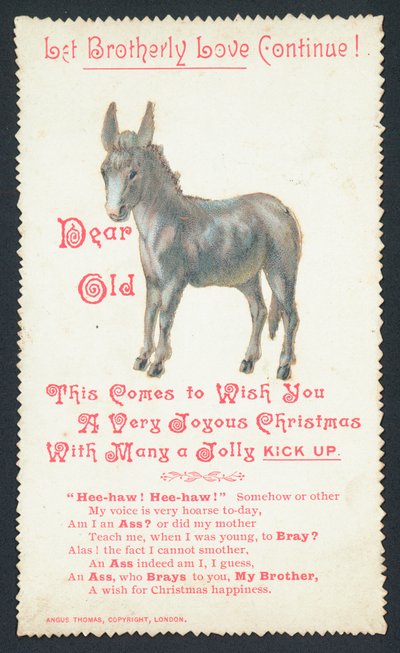 Let Brotherly Love Continue!
Dear
Old
This Comes to Wish You
A Very Joyous Christmas
With Many a Jolly KICK UP.
"Hee-haw! Hee-haw!" Somehow or other
My voice is very hoarse to-day,
Am I an Ass? or did my mother
Teach me, when I was young, to Bray?
Alas! the fact I cannot smother,
An Ass indeed am I, I guess,
An Ass, who Brays to you, My Brother,
A wish for Christmas happiness.
ANGUS THOMAS, COPYRIGHT, LONDON.